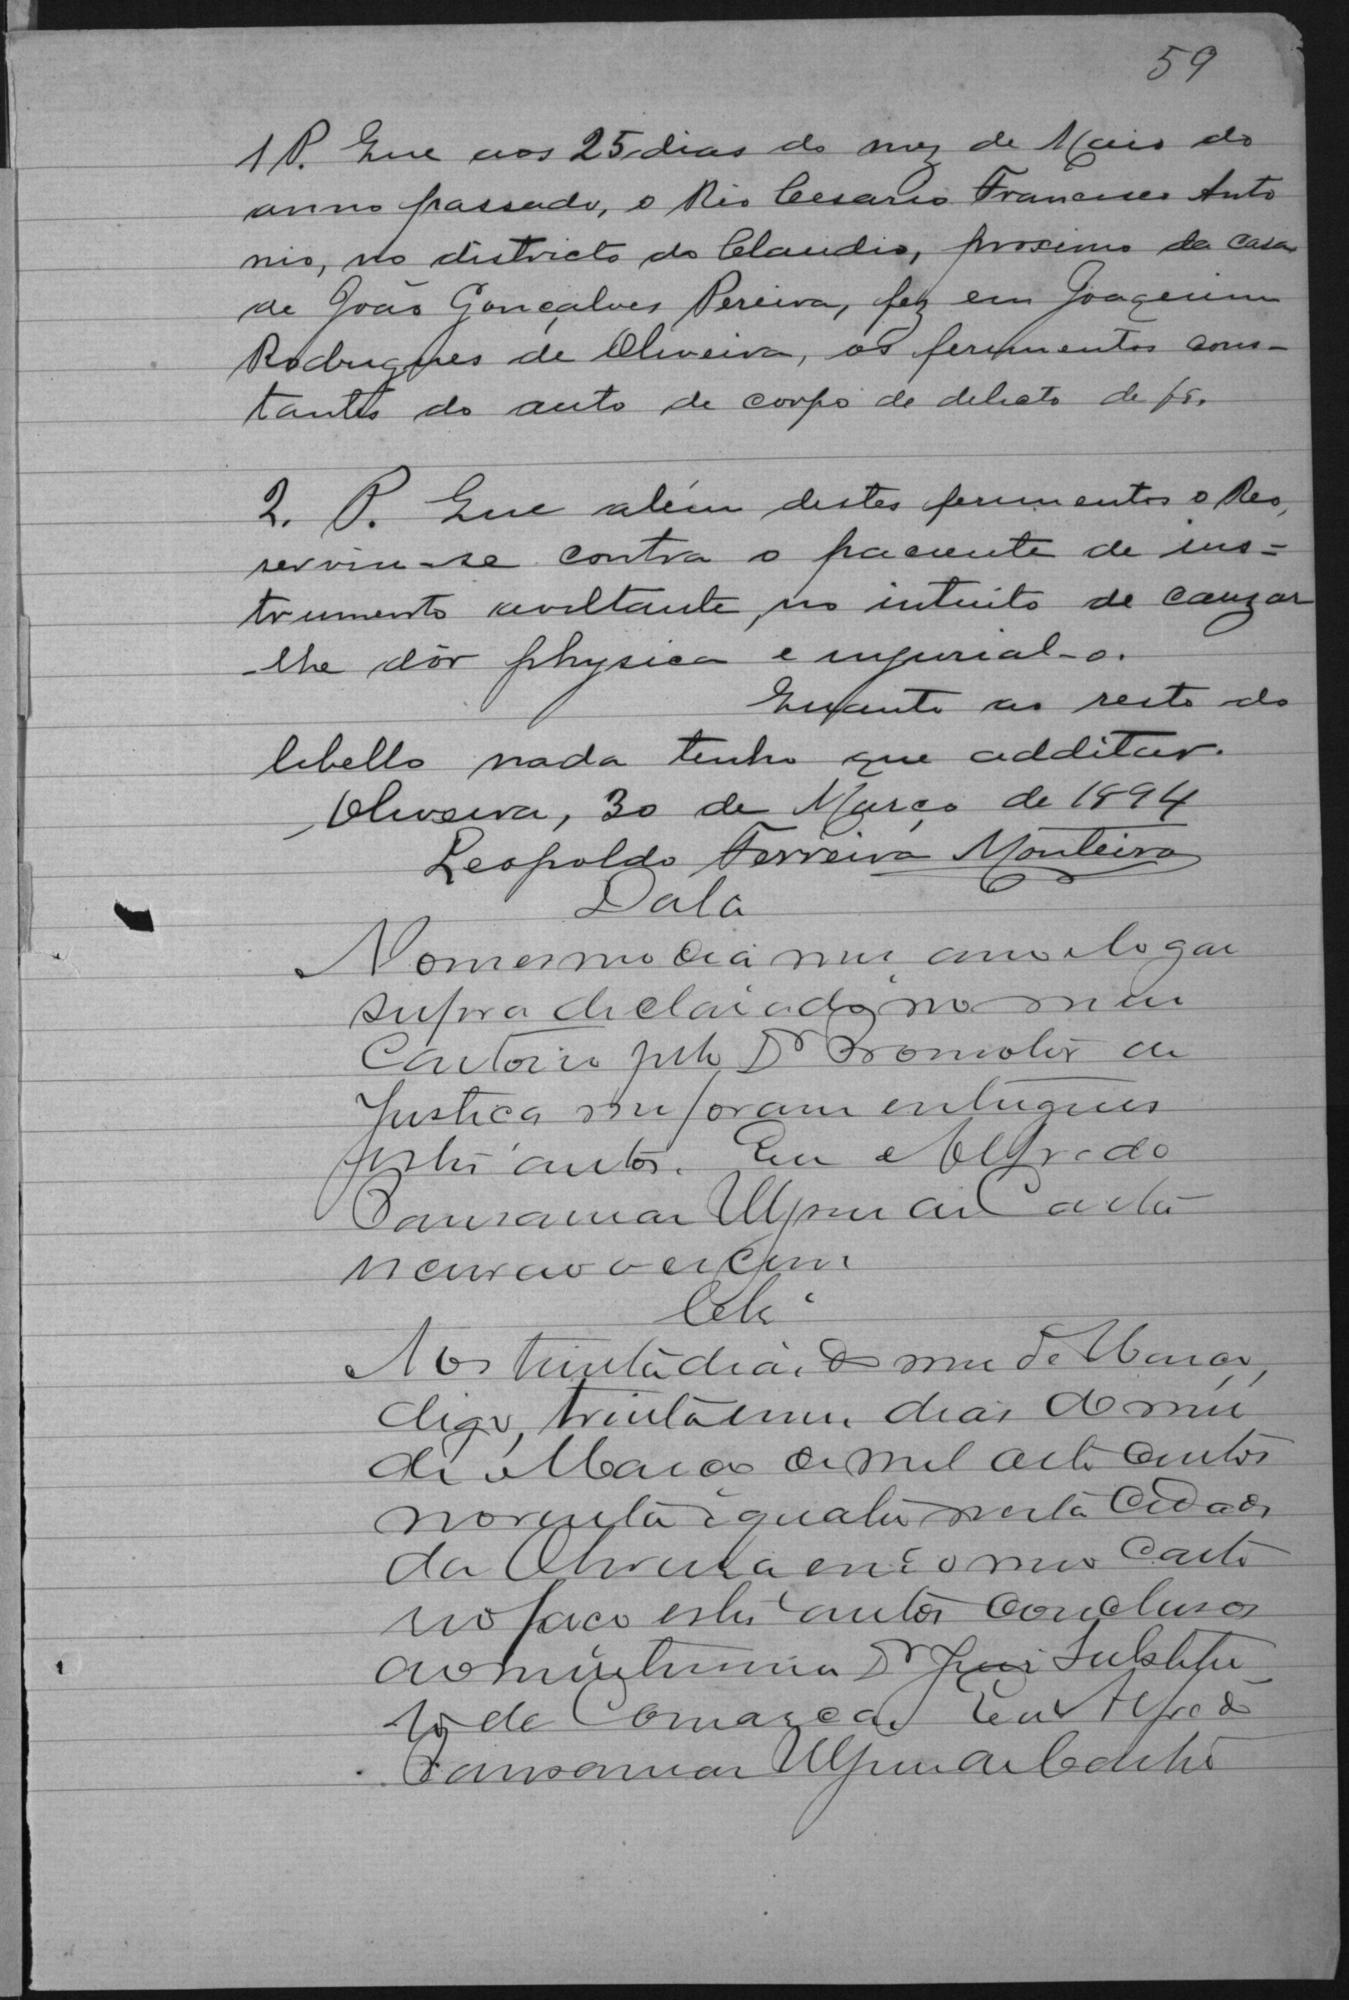 59
1 P. Que aos 25 dias do mez de Maio do
anno passado, o Réo Cesario Francisco Anto
nio, no districto do Claudio, proximo da casa
de João Gonçalves Pereira, fez em Joaquim
Rodrigues de Oliveira, os ferimentos cons-
tantes do auto de corpo de delicto de fs.
2. P. Que além destes ferimentos o Reo,
serviu-se contra o paciente de ins=
trumento aviltante, no intuito de cauzar
-lhe dôr physica e injurial-o.
Quanto ao resto do
libello nada tenho que additar.
Oliveira, 30 de Março de 1894
Leopoldo Ferreira Monteiro
Data
No mesmo dia mez anno e logar
supra declarado, no meu
Cartorio pelo Dr Promotor de
Justiça me foram entregues
estes autos. Eu Alfredo
de Castro
escrevi
Cls
Aos trinta dias do mez de Março,
digo, trinta e um dias do mez
de Março de mil oito centos
noventa e quatro nesta Cidade
da Oliveira em o meu Carto
rio faço estes autos conclusos
ao Dr Juiz Substitu
to da Comarca. Eu Alfredo
de Castro